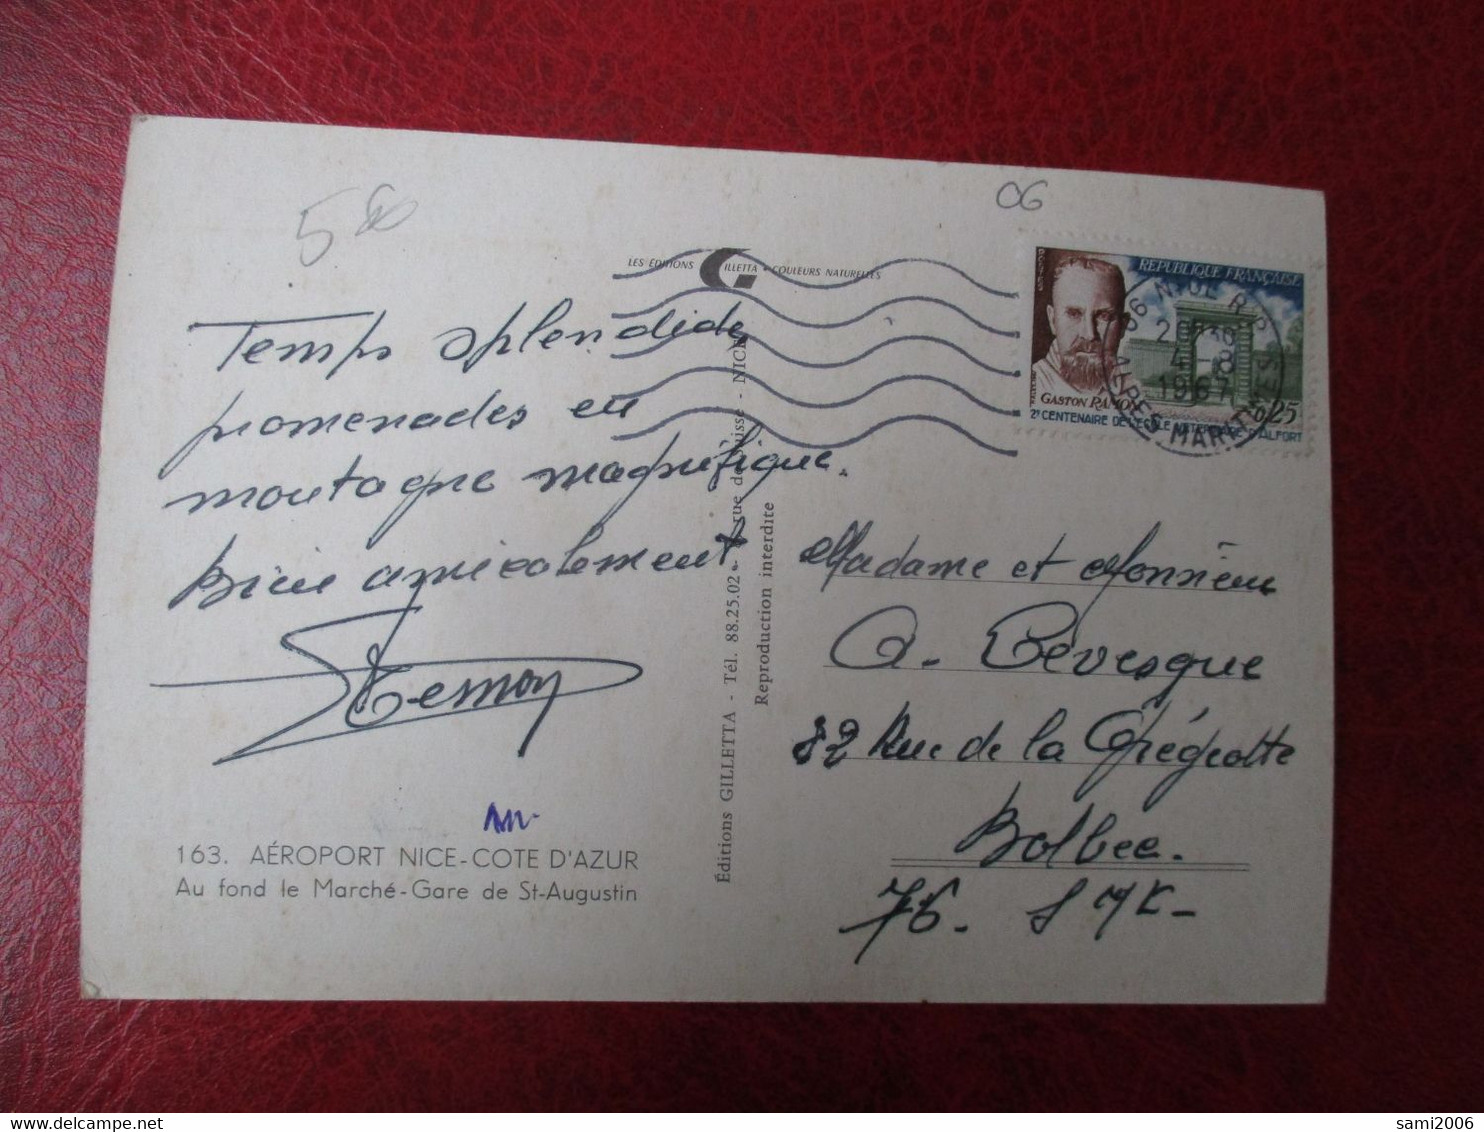 5
06
LES ÉDITIONS GILLETTA • COULEURS NATURELLES
RÉPUBLIQUE FRANÇAISE
GASTON RAMON
0,25
2e CENTENAIRE DE L'ÉCOLE VÉTÉRINAIRE D'ALFORT
06 NICE R.P.
4 - 8
1967
ALPES MARITIMES
Temps splendide
promenades en
montagne magnifique.
Bien amicalement
163. AÉROPORT NICE-COTE D'AZUR
Au fond le Marché-Gare de St-Augustin
Éditions GILLETTA - Tél. 88.25.02 - rue de Suisse - NICE
Reproduction interdite
Madame et Monsieur
A. Levesque
32 Rue de la Grégeotte
Bolbec.
76.
sami2006